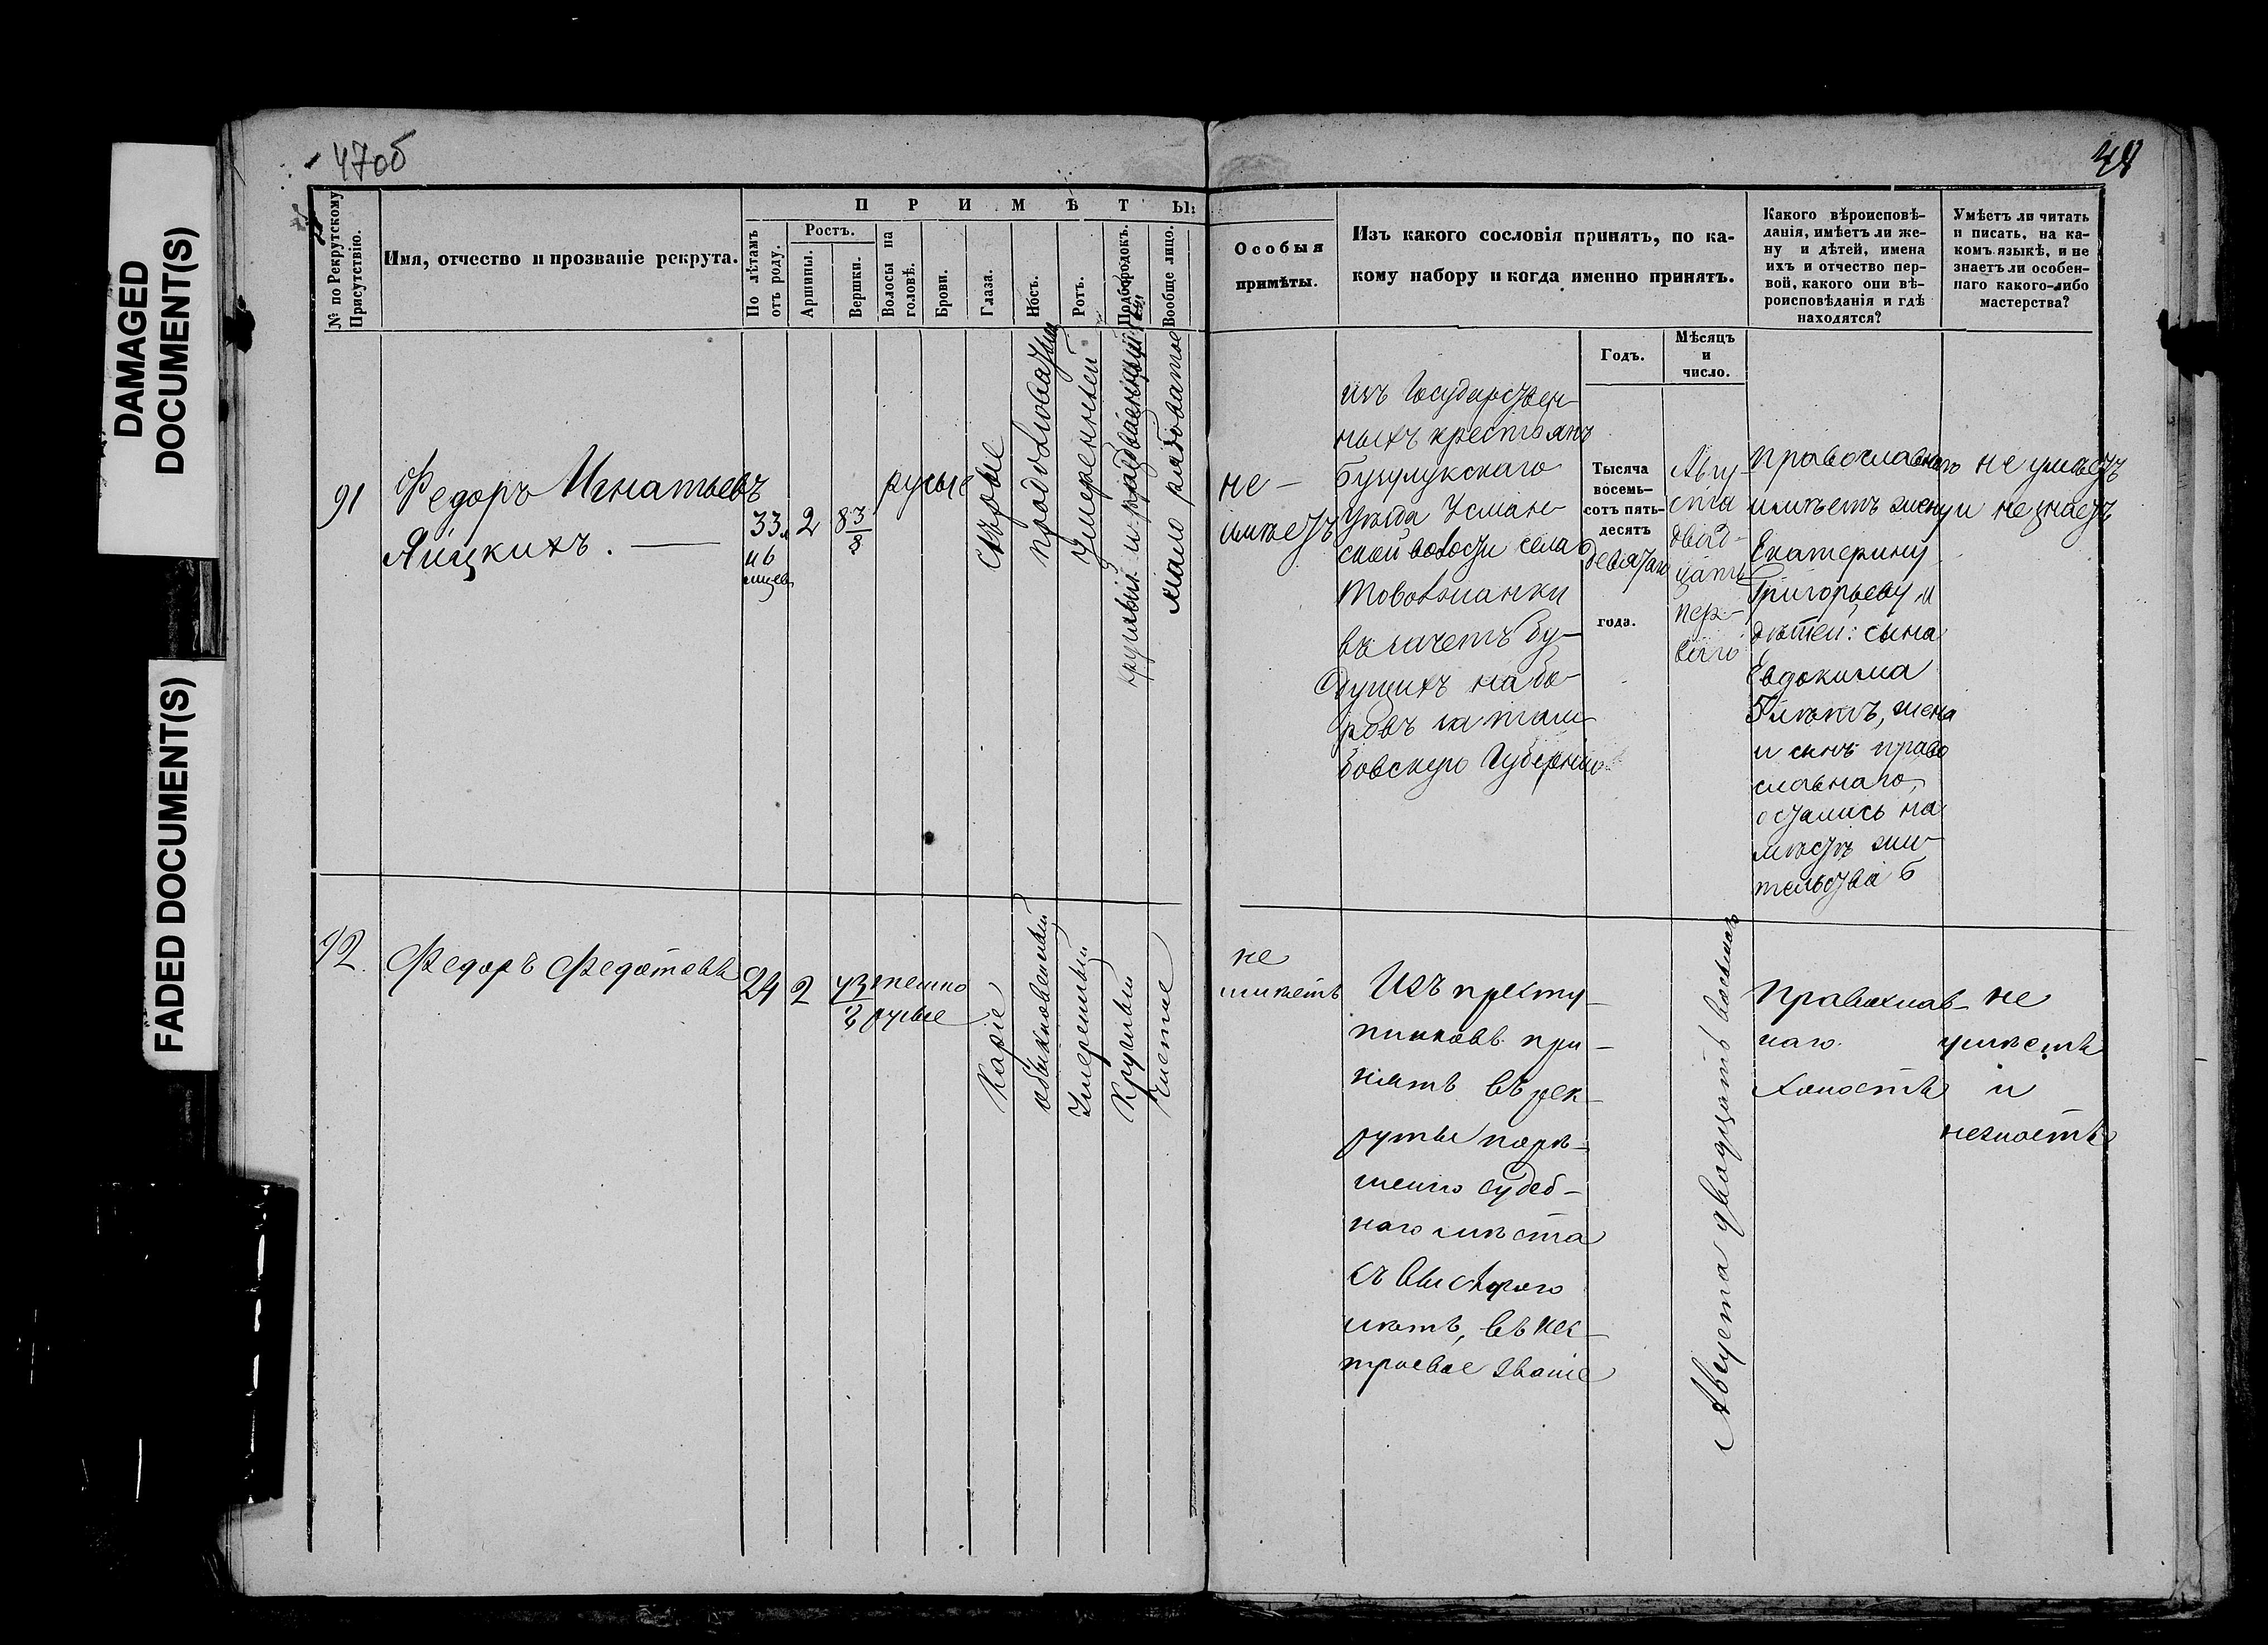 DAMAGED
DOCUMENT(S)
FADED DOCUMENT(S)
47об
48
№ по Рекрутскому
Присутствію.
Имя, отчество и прозваніе рекрута.
ПРИМѢТЫ:
По лѣтамъ
отъ роду.
Ростъ.
Аршины.
Вершки.
Волосы на
головѣ.
Брови.
Глаза.
Носъ.
Ротъ.
Подбородокъ.
Вообще лицо.
Особыя
примѣты.
Изъ какого сословія принятъ, по ка-
кому набору и когда именно принятъ.
Какого вѣроисповѣ-
данія, имѣетъ ли же-
ну и дѣтей, имена
ихъ и отчество пер-
вой, какого они вѣ-
роисповѣданія и гдѣ
находятся?
Умѣетъ ли читать
и писать, на ка-
комъ языкѣ, и не
знаетъ ли особен-
наго какого-либо
мастерства?
Годъ.
Мѣсяцъ
и
число.
91
Федоръ Игнатьевъ
Яицкихъ.
33л
и 6
2
8 3/8
русые
сѣрые
продолговатый
умѣренный
круглый и раздвоенный
мало рябоватое
не-
имѣетъ
изъ Государствен-
ныхъ крестьянъ
бузулукскаго
уѣзда Усман-
ской волости села
Товолжанки
въ зачетъ бу-
дущихъ набо-
ровъ за там-
бовскую Губернію
Тысяча
восемь-
сотъ пять-
десятъ
девятаго
года.
Авгу-
ста
двад-
цать
пер-
ваго
православнаго
имѣетъ жену
Екатерину
Григорьеву и
дѣтей: сына
Евдокима
5 лѣтъ, жена
и сынъ право
славнаго,
остались на
мѣстѣ жи-
тельства
не умѣетъ
и не знаетъ
92.
Федоръ Федотовъ
24
2
темно
русые
Карие
обыкновенный
умеренный
Круглый
Чистое
не
имѣетъ
Изъ престу-
пниковъ при-
нятъ въ рек-
руты порѣ-
шенію судеб-
наго мѣста
съ выслугою
лѣтъ, въ нес-
троевое званіе
Августа двадцать
Православ-
наго.
Холостъ
не
умѣетъ
и
незнаетъ